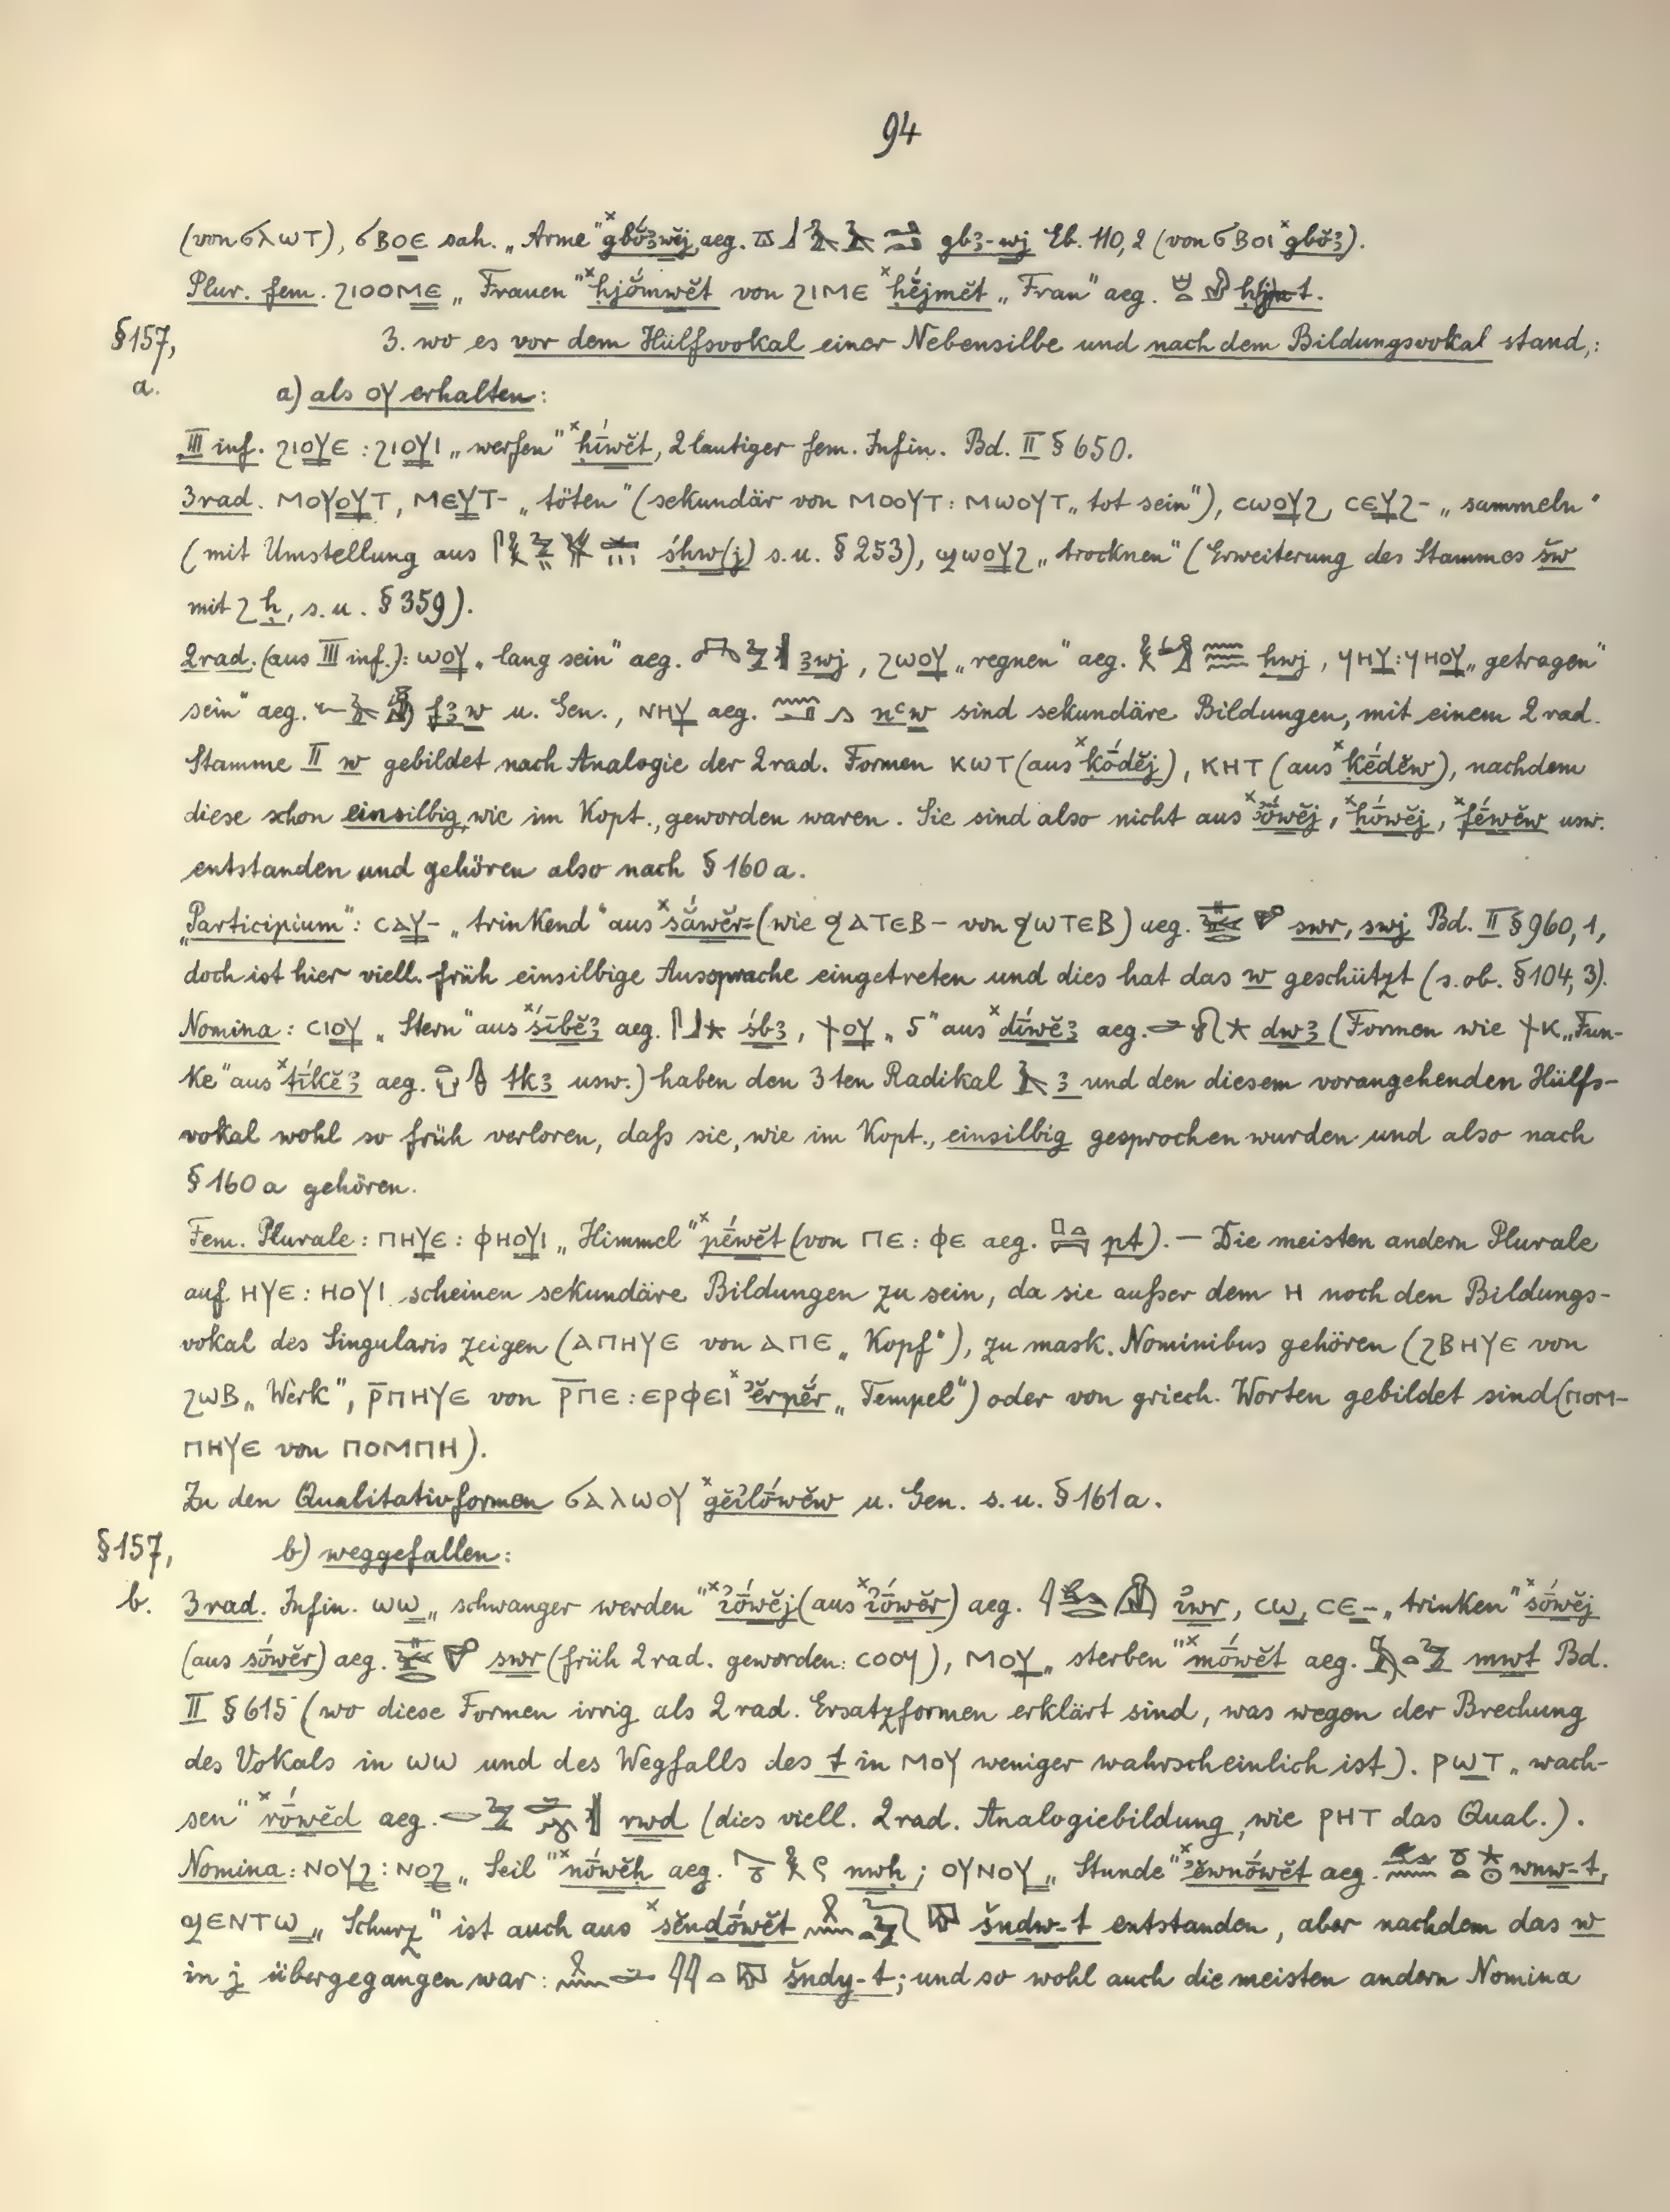 94
(von ϭⲗⲱⲧ), ϭⲃⲟⲉ sah. „Arme“ ×gbŏ́ꜣwĕj, aeg. gbꜣ-wj Eb. 110,2 (von ϭⲃⲟⲓ ×gbŏ́ꜣ).
Plur. fem. ϩⲓⲟⲟⲙⲉ „Frauen“ ×ḥjŏ́mwĕt von ϩⲓⲙⲉ ×ḥĕ́jmĕt „Frau“ aeg.
§157, 3. wo es vor dem Hülfsvokal einer Nebensilbe und nach dem Bildungsvokal stand,:
a. a) als ⲟⲩ erhalten:
III inf. ϩⲓⲟⲩⲉ : ϩⲓⲟⲩⲓ „werfen“ ×ḥī́wĕt, 2lautiger fem. Infin. Bd. II § 650.
3rad. ⲙⲟⲩⲟⲩⲧ, ⲙⲉⲩⲧ- „töten“ (sekundär von ⲙⲟⲟⲩⲧ : ⲙⲱⲟⲩⲧ „tot sein“), ⲥⲱⲟⲩϩ, ⲥⲉⲩϩ- „sammeln“
(mit Umstellung aus śḥw(j) s.u. § 253), ϣⲱⲟⲩϩ „trocknen“ (Erweiterung des Stammes šw
mit ϩ ḥ, s.u. § 359).
2rad. (aus III inf.): ⲱⲟⲩ „lang sein“ aeg. ꜣwj, ϩⲱⲟⲩ „regnen“ aeg. ḥwj, ϥⲏⲩ : ϥⲏⲟⲩ „getragen“
sein“ aeg. fꜣw u. Gen., ⲛⲏⲩ aeg. nꜥw sind sekundäre Bildungen, mit einem 2rad.
Stamme II w gebildet nach Analogie der 2rad. Formen ⲕⲱⲧ (aus ×ḳṓdĕj), ⲕⲏⲧ (aus ×ḳḗdĕw), nachdem
diese schon einsilbig, wie im Kopt., geworden waren. Sie sind also nicht aus ×ꜣṓwĕj, ×ḥṓwĕj, ×fḗwĕw usw.
entstanden und gehören also nach § 160a.
„Participium“: ⲥⲁⲩ- „trinkend“ aus ×sắwĕr- (wie ϩⲁⲧⲉⲃ- von ϩⲱⲧⲉⲃ) aeg. swr, swj Bd. II § 960,1,
doch ist hier viell. früh einsilbige Aussprache eingetreten und dies hat das w geschützt (s. ob. § 104,3).
Nomina: ⲥⲓⲟⲩ „Stern“ aus ×śī́bĕꜣ aeg. śbꜣ, ϯⲟⲩ „5“ aus ×dī́wĕꜣ aeg. dwꜣ (Formen wie ϯⲕ „Fun-
ke“ aus ×tī́kĕꜣ aeg. tkꜣ usw.) haben den 3ten Radikal ꜣ und den diesem vorangehenden Hülfs-
vokal wohl so früh verloren, daß sie, wie im Kopt., einsilbig gesprochen wurden und also nach
§ 160a gehören.
Fem. Plurale: ⲡⲏⲩⲉ : ⲫⲏⲟⲩⲓ „Himmel“ ×pḗwĕt (von ⲡⲉ : ⲫⲉ aeg. pt). – Die meisten andern Plurale
auf ⲏⲩⲉ : ⲏⲟⲩⲓ scheinen sekundäre Bildungen zu sein, da sie außer dem ⲏ noch den Bildungs-
vokal des Singularis zeigen (ⲁⲡⲏⲩⲉ von ⲁⲡⲉ „Kopf“), zu mask. Nominibus gehören (ϩⲃⲏⲩⲉ von
ϩⲱⲃ „Werk“, ⲣ̄ⲡⲏⲩⲉ von ⲣ̄ⲡⲉ : ⲉⲣⲫⲉⲓ ×ʾĕrpĕ́r „Tempel“) oder von griech. Worten gebildet sind (ⲡⲟⲙ-
ⲡⲏⲩⲉ von ⲡⲟⲙⲡⲏ).
Zu den Qualitativformen ϭⲁⲗⲱⲟⲩ ×gĕꜣlṓwĕw u. Gen. s.u. § 161a.
§157, b) weggefallen:
b. 3rad. Infin. ⲱⲱ „schwanger werden“ ×ỉṓwĕj (aus ×ỉṓwĕr) aeg. ỉwr, ⲥⲱ, ⲥⲉ- „trinken“ ×sṓwĕj
(aus sṓwĕr) aeg. swr (früh 2rad. geworden: ⲥⲟⲟϥ), ⲙⲟⲩ „sterben“ ×mṓwĕt aeg. mwt Bd.
II § 615 (wo diese Formen irrig als 2rad. Ersatzformen erklärt sind, was wegen der Brechung
des Vokals in ⲱⲱ und des Wegfalls des t in ⲙⲟⲩ weniger wahrscheinlich ist). ⲣⲱⲧ „wach-
sen“ ×rṓwĕd aeg. rwd (dies viell. 2rad. Analogiebildung, wie ⲣⲏⲧ das Qual.).
Nomina: ⲛⲟⲩϩ : ⲛⲟϩ „Seil“ ×nṓwĕḥ aeg. nwḥ; ⲟⲩⲛⲟⲩ „Stunde“ ×ʾĕwnṓwĕt aeg. wnw-t,
ϣⲉⲛⲧⲱ „Schurz“ ist auch aus ×šĕndṓwĕt šndw-t entstanden, aber nachdem das w
in j übergegangen war: šndy-t; und so wohl auch die meisten andern Nomina